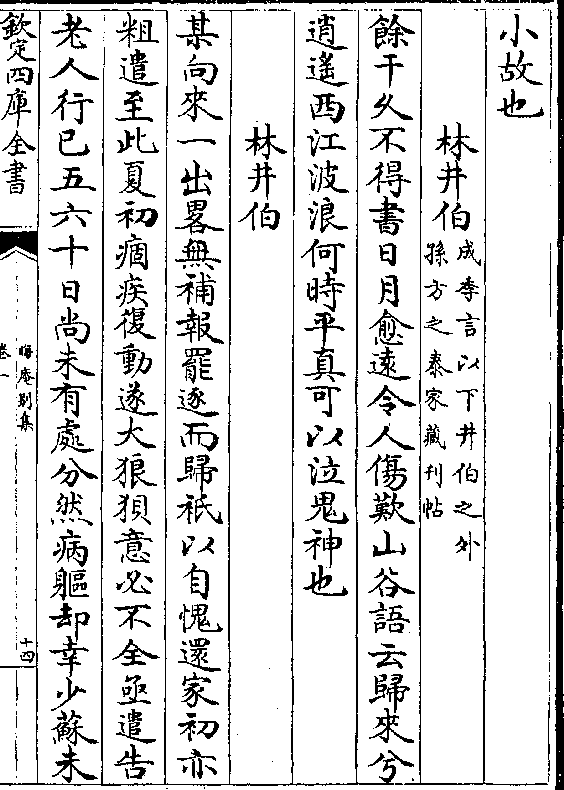 小故也
林井伯成季言以下井伯之外
孫方之泰家藏刋帖
餘干久不得書日月愈遠令人傷歎山谷語云歸來兮
逍遙西江波浪何時平真可以泣鬼神也
林井伯
某向來一出畧無補報罷逐而歸祇以自愧還家初亦
粗遣至此夏初痼疾復動遂大狼狽意必不全亟遣告
老人行已五六十日尚未有處分然病軀却幸少蘇未
欽定四庫全書
晦庵別集
卷一
十四